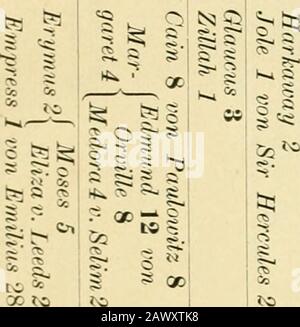 Harkaway 2
Jole 1 von Sir Hercules 2
Glaucus 3
Zillah 1
Cain 8 von Paulowitz 8
Mar-
garet 4
Edmund 12 von
Orville 8
Medora 4 v. Selim 2
Ergmus 2
Moses 5
Eliza v. Leeds 2
Empress 1 von Emilius 28
alamy
Image ID: 2AWXTK8
www.alamy.com